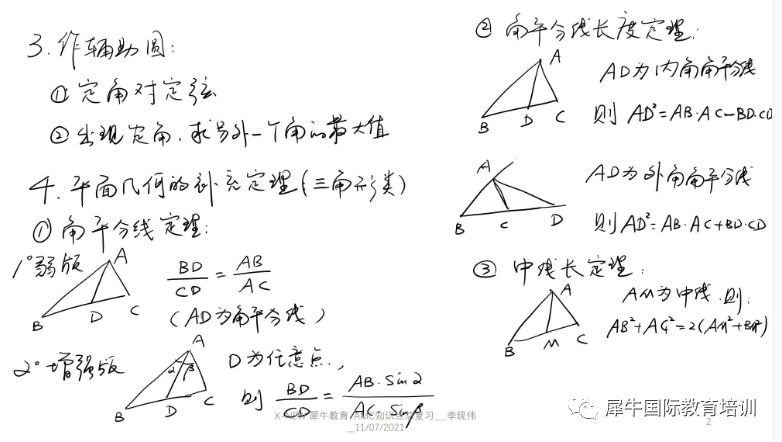 3. 作辅助圆:
① 定角对定弦
② 出现定角, 求另外一个角的最大值
4. 平面几何的补充定理(三角形类)
① 角平分线定理:
1° 弱版
A
B D C
BD/CD = AB/AC
(AD为角平分线)
2° 增强版
A
2 β
B D C
D为任意点,
则 BD/CD = AB·Sin2/AC·Sinβ
犀牛教育 AMC知识点总复习__李现伟
__11/07/2021
② 角平分线长度定理:
A
B D C
AD为内角角平分线
则 AD²=AB·AC-BD·CD
A
B C D
AD为外角角平分线
则AD²=AB·AC+BD·CD
③ 中线长定理:
A
B M C
AM为中线, 则:
AB²+AC²=2(AM²+BM²)
犀牛国际教育培训
2